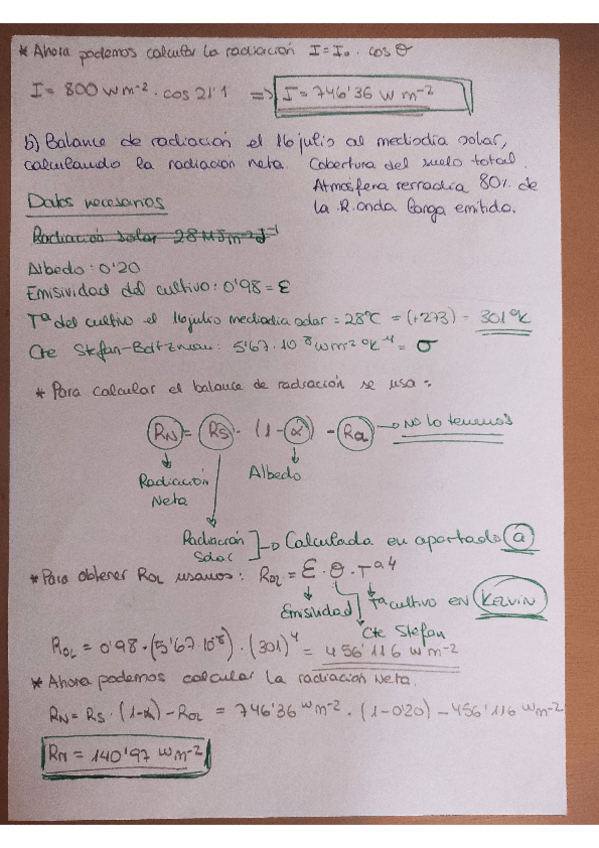 * Ahora podemos calcular la radiación I = I₀ · cos θ
I = 800 W m⁻² · cos 21'1 => I = 746'36 W m⁻²
b) Balance de radiación el 16 julio al mediodía solar,
calculando la radiación neta. Cobertura del suelo total.
Atmósfera rerradia 80% de
la R. onda larga emitida.
Datos necesarios
Radiación solar 28 MJ m⁻² d⁻¹
Albedo: 0'20
Emisividad del cultivo: 0'98 = ε
Tª del cultivo el 16 julio mediodía solar = 28ºC = (+273) = 301ºK
Cte Stefan-Boltzman: 5'67·10⁻⁸ W m⁻² ºK⁻⁴ = σ
* Para calcular el balance de radiación se usa:
RN = RS · (1-α) - ROL → No lo tenemos
Radiación Neta
Albedo
Radiación Solar → Calculada en apartado a
* Para obtener ROL usamos: ROL = ε · θ · Tª⁴
Emisividad
Tª cultivo en KELVIN
Cte Stefan
ROL = 0'98 · (5'67·10⁻⁸) · (301)⁴ = 456'116 W m⁻²
* Ahora podemos calcular la radiación Neta.
RN = RS · (1-α) - ROL = 746'36 W m⁻² · (1-0'20) - 456'116 W m⁻²
RN = 140'97 W m⁻²